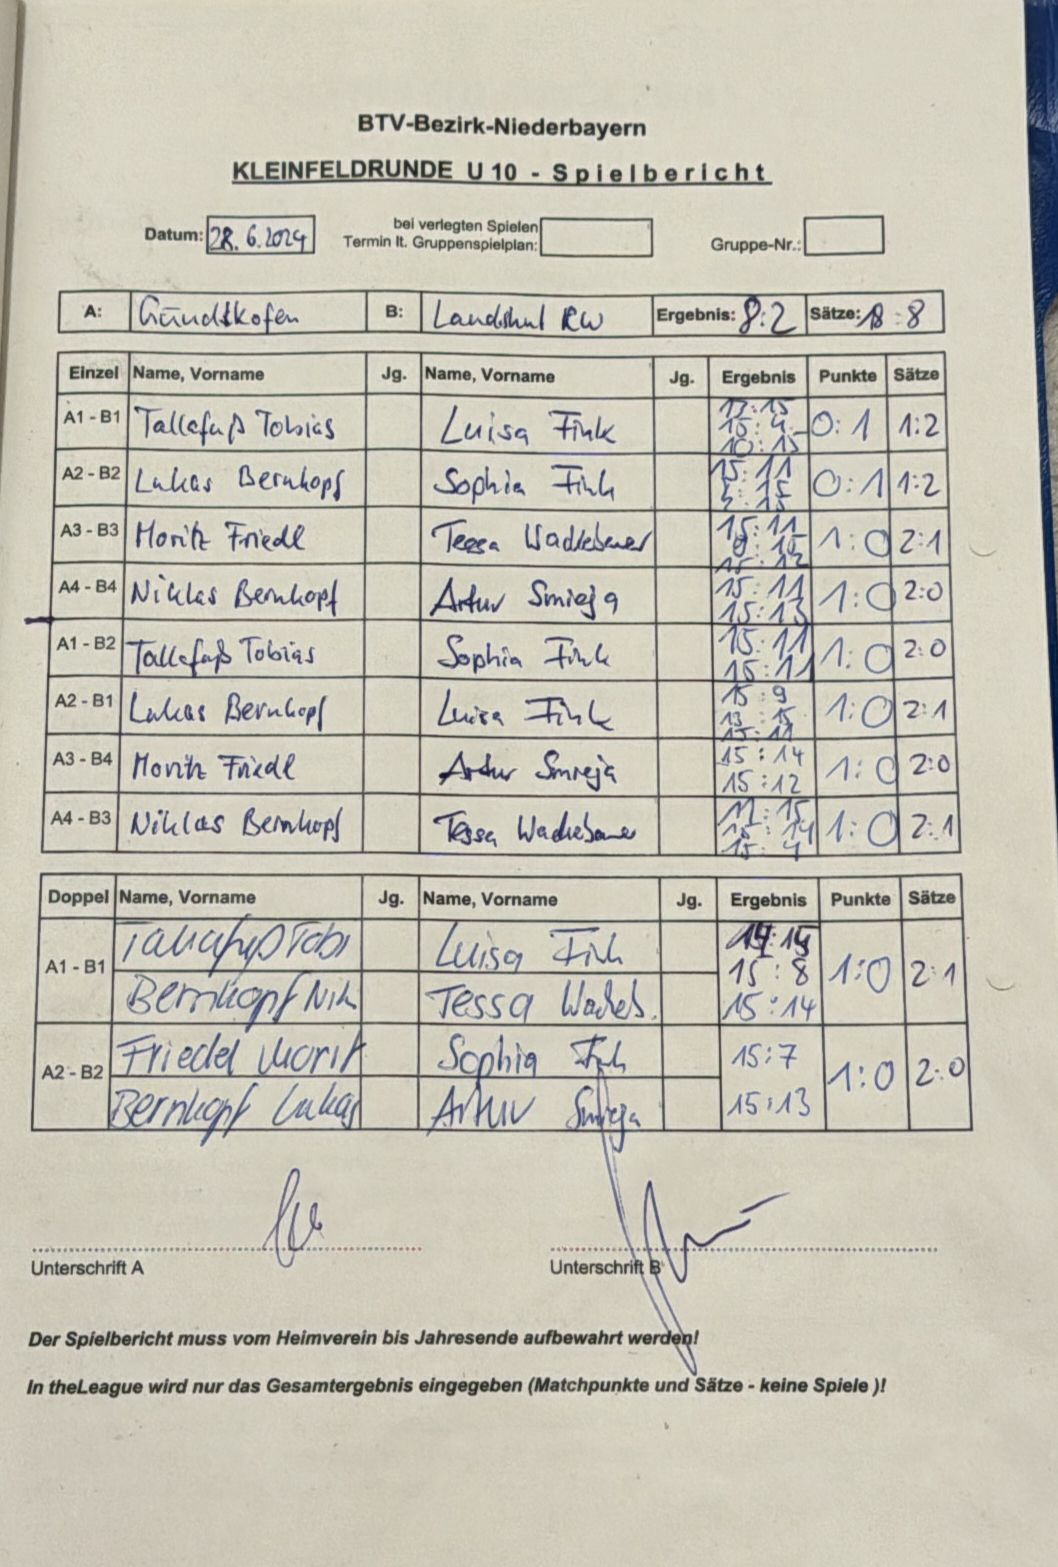 BTV-Bezirk-Niederbayern
KLEINFELDRUNDE U 10 - Spielbericht
Datum: 28.6.2024 bei verlegten Spielen Termin lt. Gruppenspielplan: Gruppe-Nr.:
A: Gündlkofen B: Landshut RW Ergebnis: 8:2 Sätze: 18:8
Einzel Name, Vorname Jg. Name, Vorname Jg. Ergebnis Punkte Sätze
A1 - B1 Tallafuß Tobias Luisa Fink 15:4 10:15 0:1 1:2
A2 - B2 Lukas Bernkopf Sophia Fink 15:11 0:1 1:2
A3 - B3 Moritz Friedl Tessa Wackebauer 15:11 15:12 1:0 2:1
A4 - B4 Niklas Bernkopf Artur Smieja 15:11 15:13 1:0 2:0
A1 - B2 Tallafuß Tobias Sophia Fink 15:11 15:11 1:0 2:0
A2 - B1 Lukas Bernkopf Luisa Fink 15:9 13:15 15:11 1:0 2:1
A3 - B4 Moritz Friedl Artur Smieja 15:14 15:12 1:0 2:0
A4 - B3 Niklas Bernkopf Tessa Wackebauer 11:15 15:14 15:4 1:0 2:1
Doppel Name, Vorname Jg. Name, Vorname Jg. Ergebnis Punkte Sätze
Tallafuß Tobi Luisa Fink 14:15
A1 - B1 15:8 1:0 2:1
Bernkopf Nik Tessa Wackeb. 15:14
Friedel Morit Sophia Fink 15:7
A2 - B2 1:0 2:0
Bernkopf Lukas Artur Smieja 15:13
Unterschrift A Unterschrift B
Der Spielbericht muss vom Heimverein bis Jahresende aufbewahrt werden!
In theLeague wird nur das Gesamtergebnis eingegeben (Matchpunkte und Sätze - keine Spiele )!